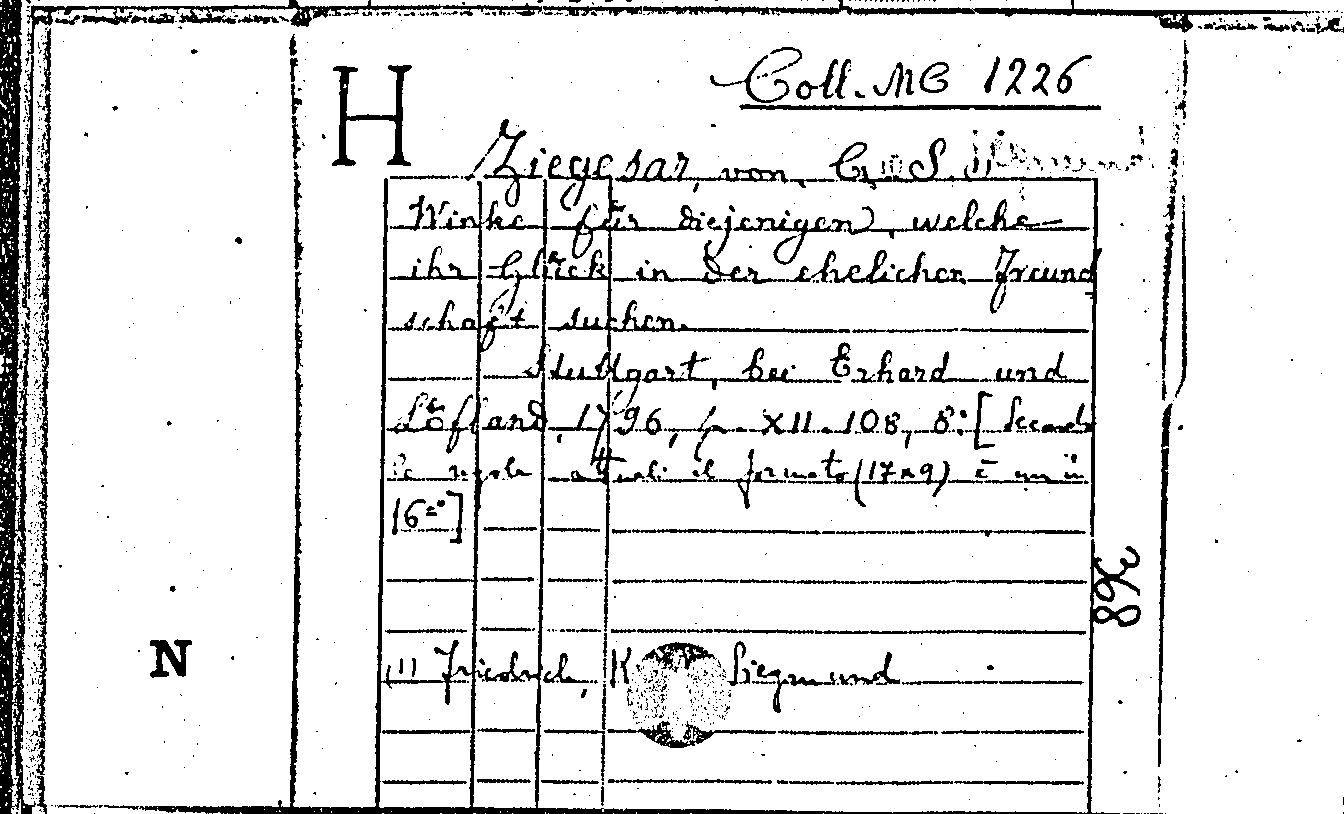 Coll. MC 1226
H
Ziegesar, von, C. S.
Winke für diejenigen, welche
ihr Glück in der ehelichen Freund
schaft suchen.
Stuttgart, bei Erhard und
Löfland, 1796, p. XII-108, 8º [Secondo
le regole attuali il formato (17x9) è un in
16º]
368
N
(1) Friedrich, K Siegmund